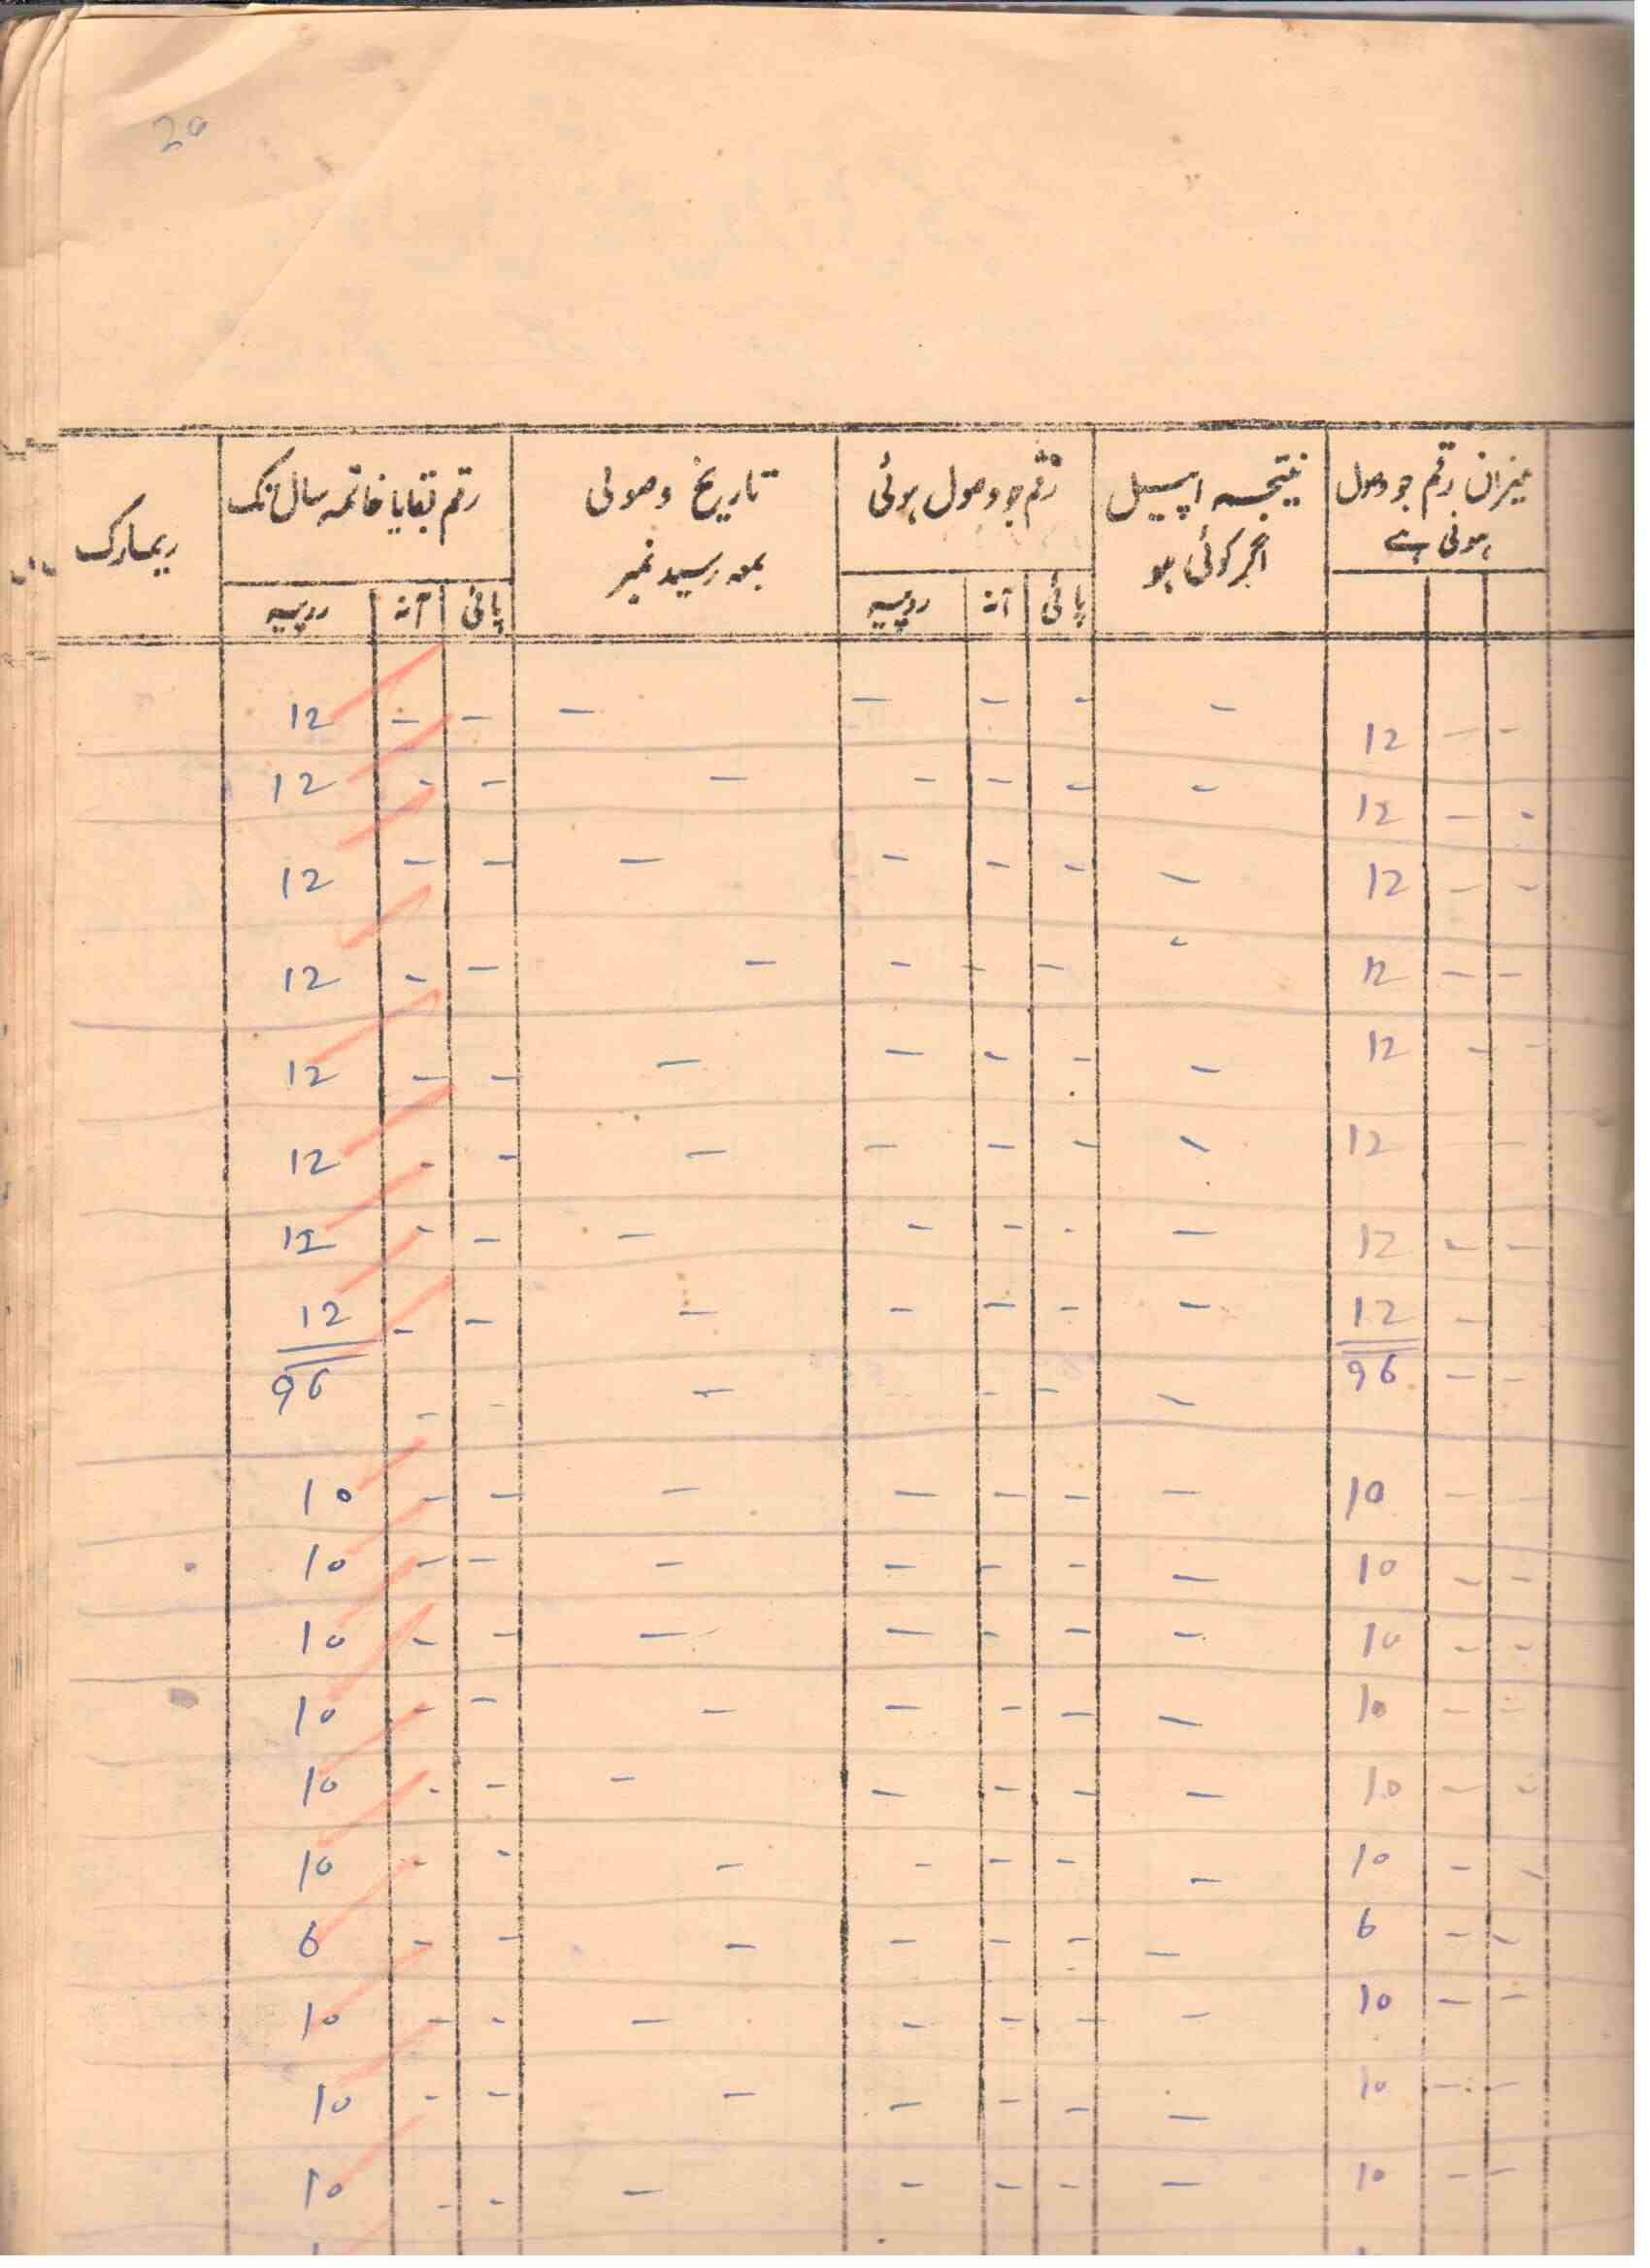 20
میزان رقم جو وصول ہوئی ہے | نتیجہ اپیل اگر کوئی ہو | رقم جو وصول ہوئی | تاریخ وصولی بمعہ رسید نمبر | رقم بقایا خاتمہ سال تک | ریمارک
پائی | آنہ | روپیہ | پائی | آنہ | روپیہ
12 - - | - | - - - | - | - - 12
12 - - | - | - - - | - | - - 12
12 - - | - | - - - | - | - - 12
12 - - | - | - - - | - | - - 12
12 - - | - | - - - | - | - - 12
12 - - | - | - - - | - | - - 12
12 - - | - | - - - | - | - - 12
12 - | - | - - - | - | - - 12
96 - - | - | - - | - | - - 96
10 - - | - | - - - | - | - - 10
10 - - | - | - - - | - | - - 10
10 - - | - | - - - | - | - - 10
10 - - | - | - - - | - | - - 10
10 - - | - | - - - | - | - - 10
10 - - | - | - - - | - | - - 10
6 - - | - | - - - | - | - - 6
10 - - | - | - - - | - | - - 10
10 - - | - | - - - | - | - - 10
10 - - | - | - - - | - | - - 10